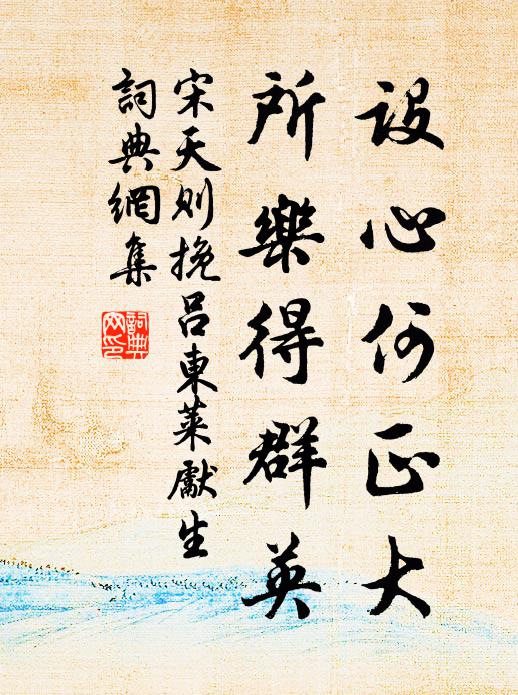 設心何正大
所樂得群英
宋天則挽呂東萊獻生
詞典網集
詞典網印